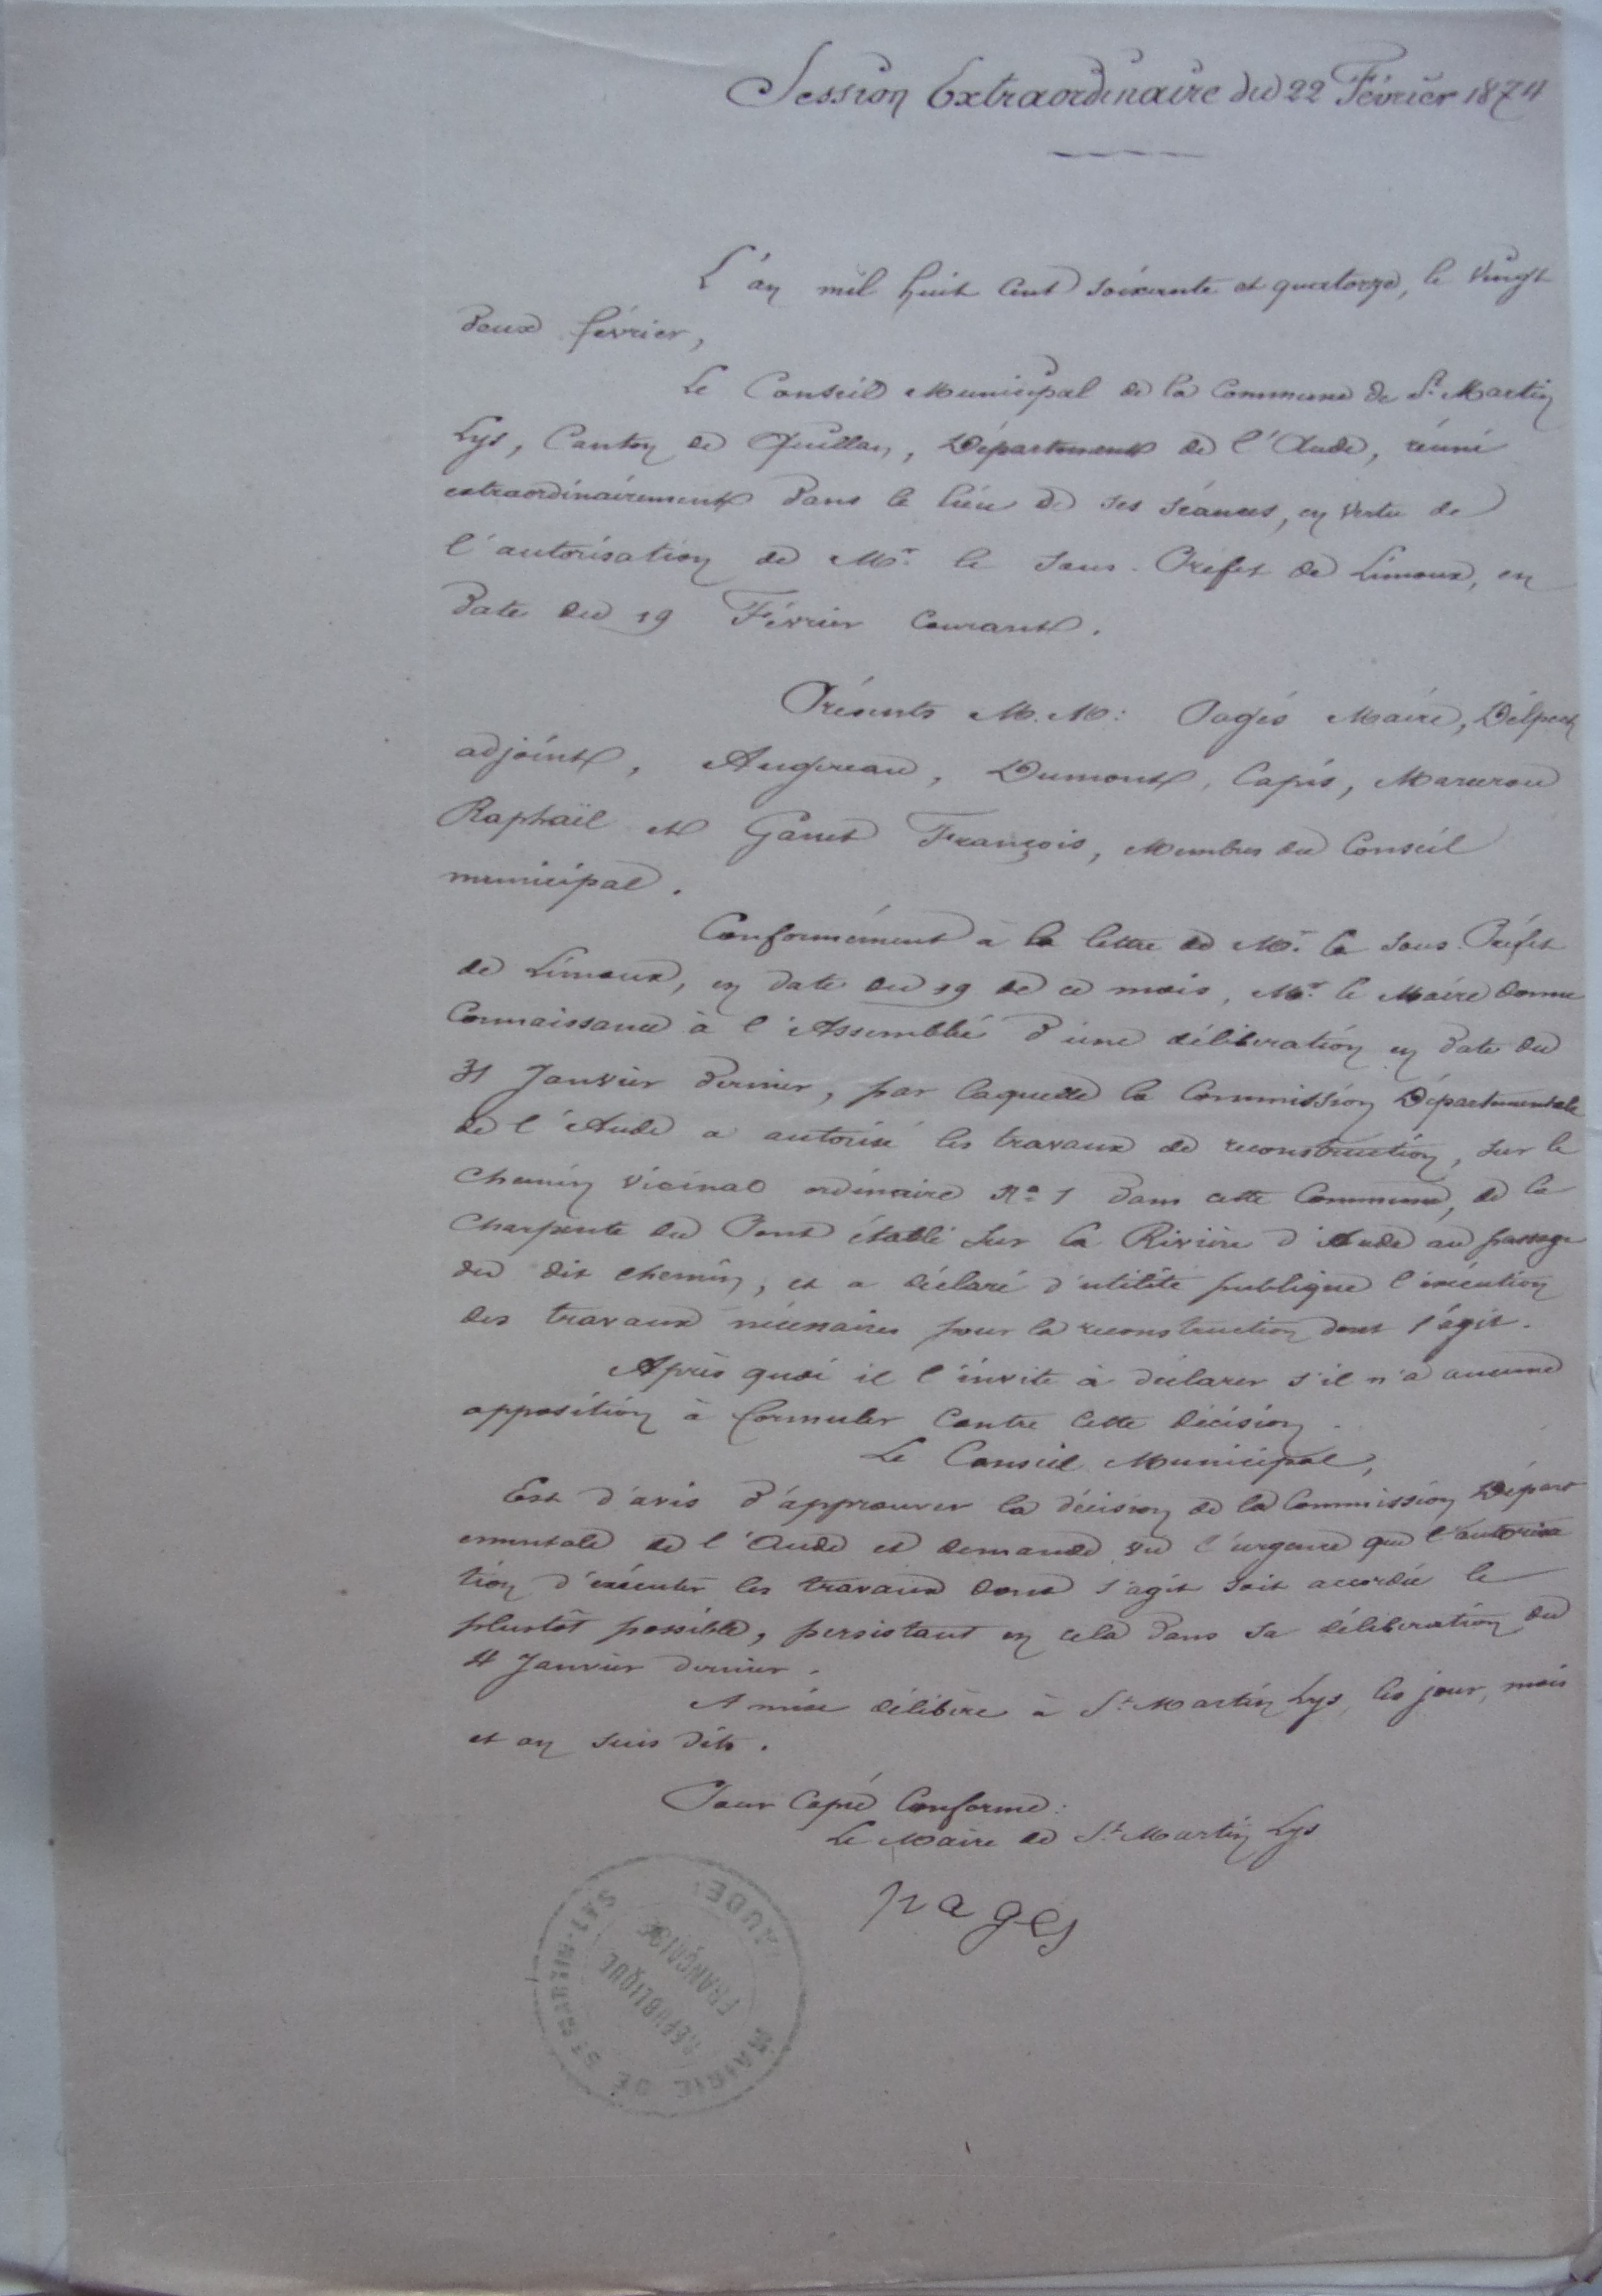 Session Extraordinaire du 22 Février 1874
L'an mil huit cent soixante et quatorze, le vingt
deux février,
Le Conseil Municipal de la Commune de St Martin
Lys, Canton de Quillan, Département de l'Aude, réuni
extraordinairement dans le lieu de ses séances, en vertu de
l'autorisation de Mr. le Sous-Préfet de Limoux, en
date du 19 Février courant.
Présents M.M: Pagés Maire, Delpech
adjoint, Augereau, Dumont, Capis,
Raphaël et François, Membres du Conseil
municipal.
Conformément à la lettre de Mr. le Sous-Préfet
de Limoux, en date du 19 de ce mois, Mr. le Maire donne
Connaissance à l'Assemblée d'une délibération en date du
31 Janvier dernier, par laquelle la Commission Départementale
de l'Aude a autorisé les travaux de reconstruction, sur le
chemin vicinal ordinaire No 1 dans cette Commune, de la
charpente du Pont établi sur la Rivière d'Aude au passage
du dit chemin, et a déclaré d'utilité publique l'exécution
des travaux nécessaires pour la reconstruction dont s'agit.
Après quoi il l'invite à déclarer s'il n'a aucune
opposition à formuler contre cette décision.
Le Conseil Municipal,
Est d'avis d'approuver la décision de la Commission Départ
ementale de l'Aude et demande vu l'urgence que l'autorisa
tion d'exécuter les travaux dont s'agit soit accordée le
plustôt possible, persistant en cela dans sa délibération du
4 Janvier dernier.
Ainsi délibéré à St Martin Lys, les jour, mois
et an sus dits.
Pour Copie Conforme:
Le Maire de St Martin Lys
pages
MAIRIE DE ST MARTIN-LYS
(AUDE)
RÉPUBLIQUE
FRANÇAISE